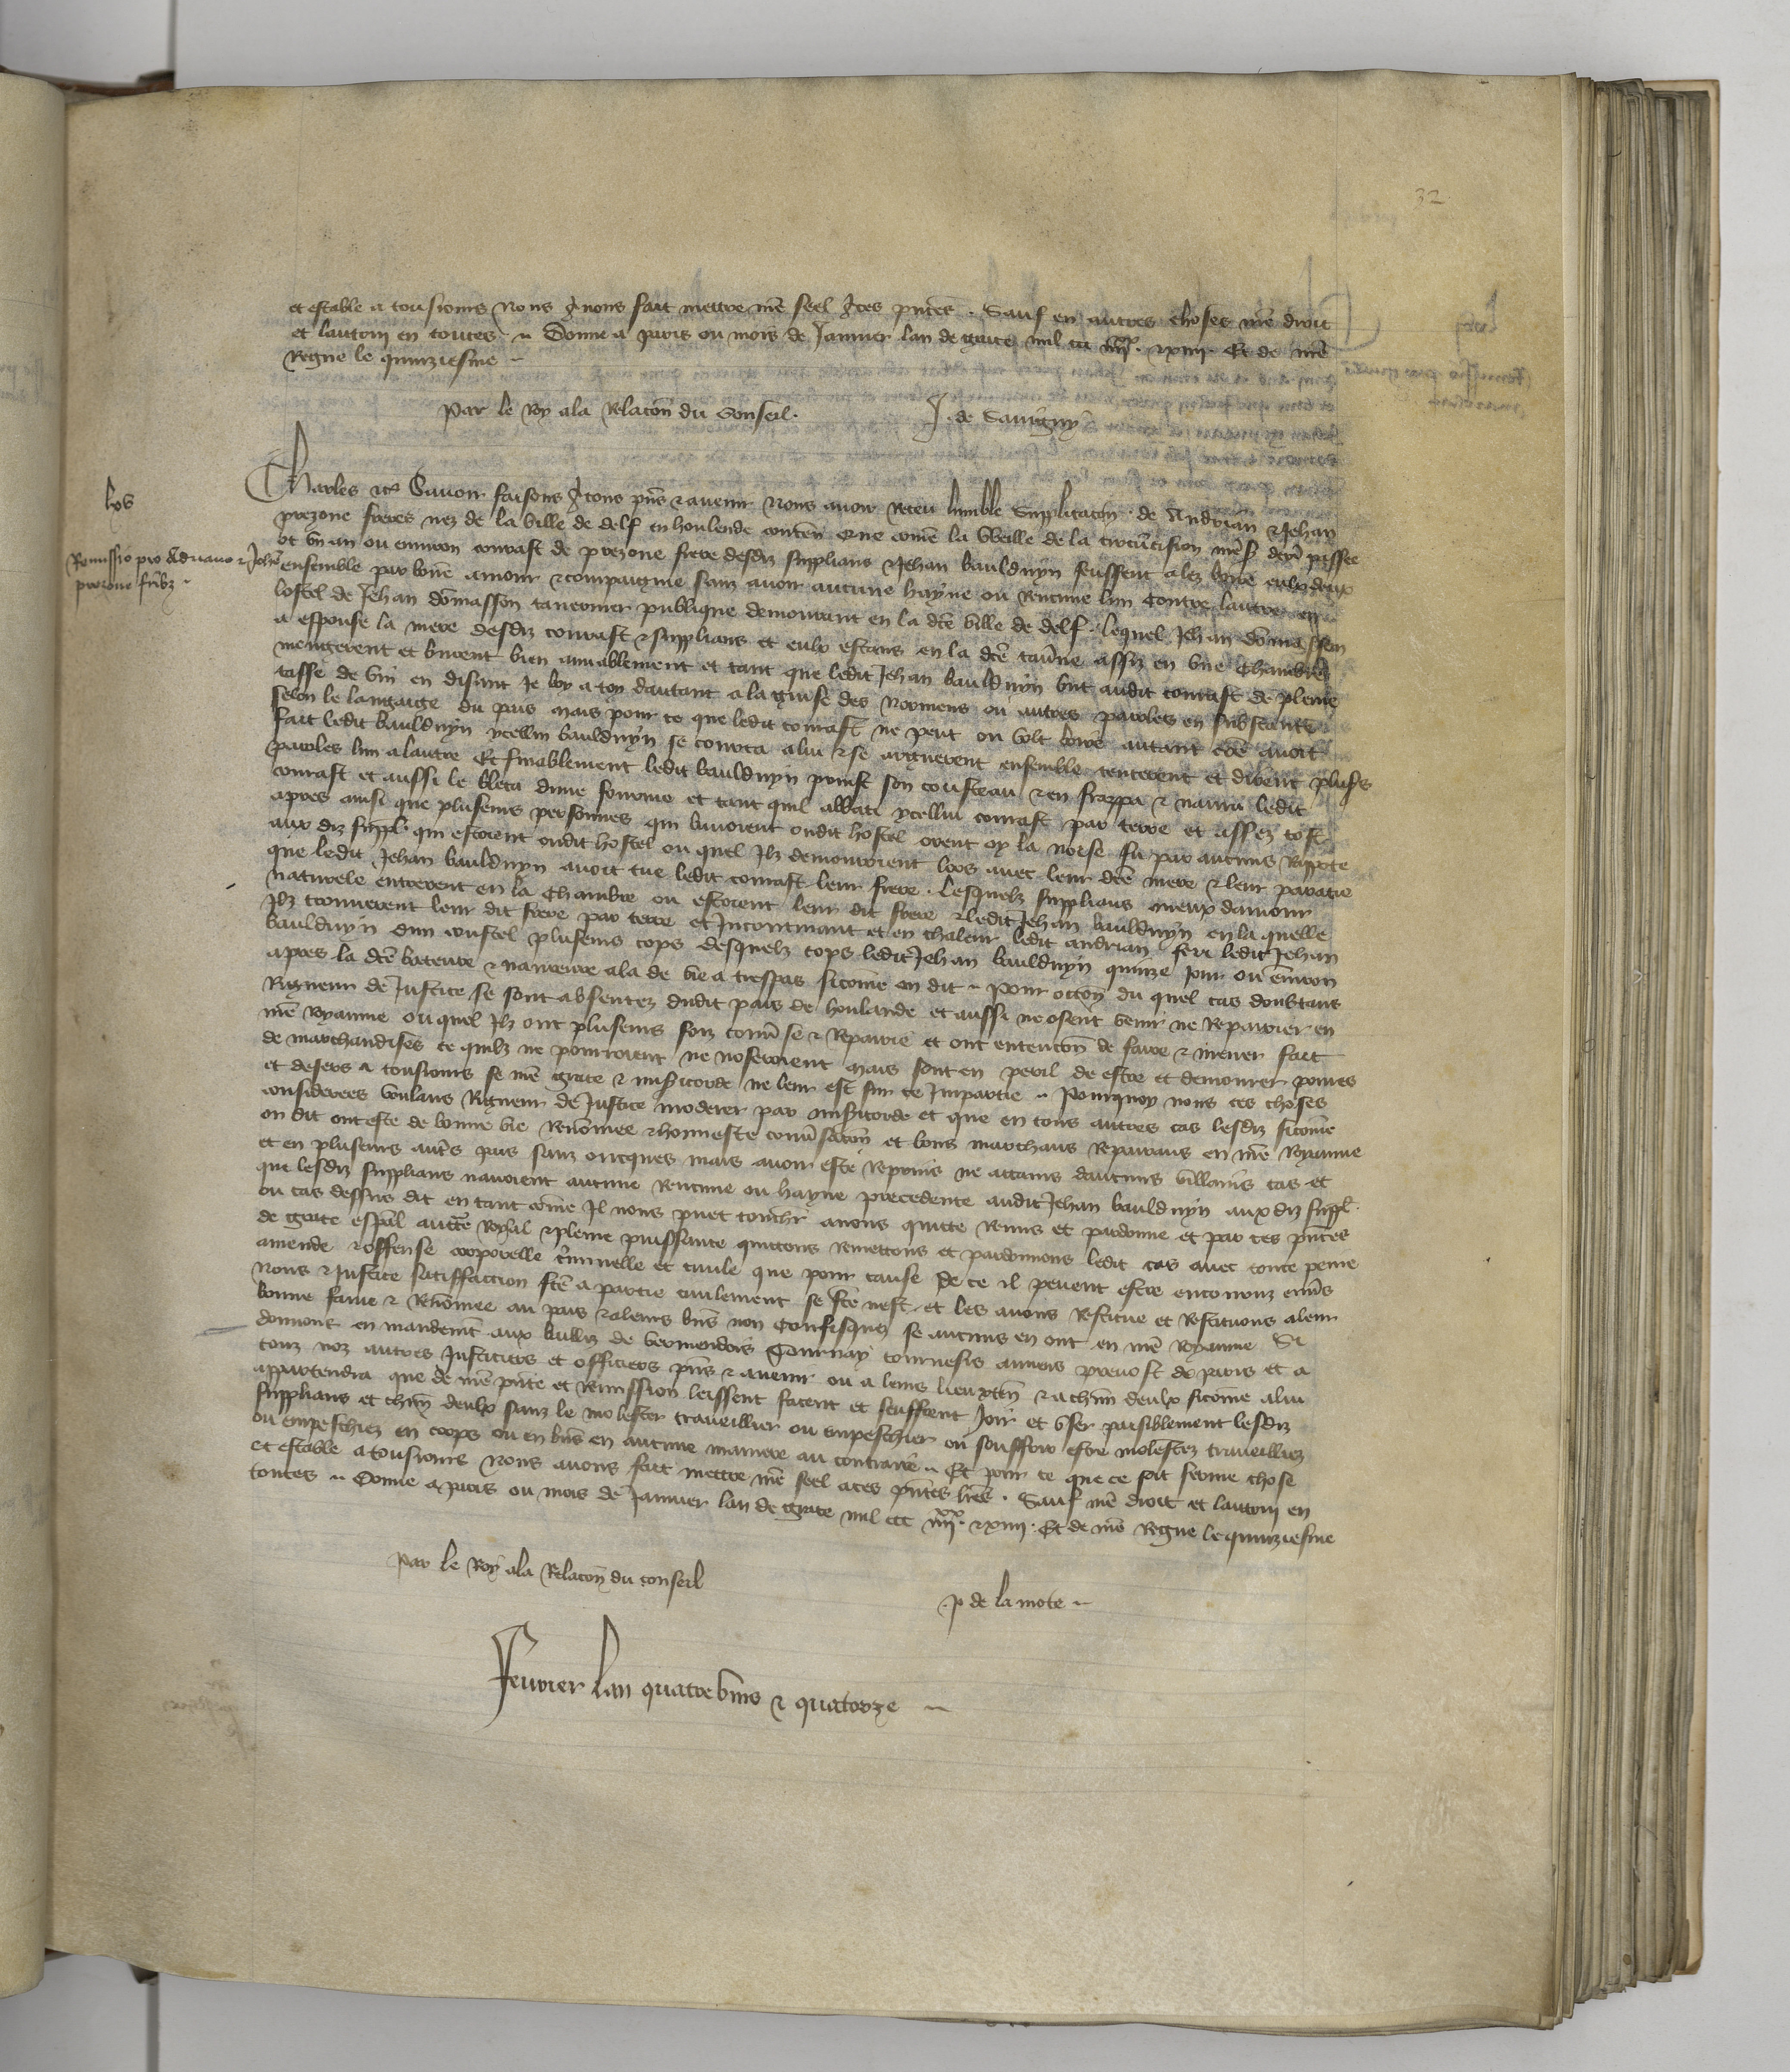 32
et estable a tousiours nous avons fait mettre nre seel a ces pntes . Sauf en autres choses nre droit
et lautrui en toutes . Donne a paris ou mois de Januier lan de grace mil ccc iiiixx . & xiiii . Et de nre
Regne le quinziesme
Par le Roy ala Relacon du Conseil .
J . de Sauigny
Charles &c Sauoir faisons a tous pns & auenir Nous auoir Receu lumble Supplicacon . de Andrian & Jehan
lxv
Remissio pro Adriano & Johe
prezone fribz
prezone freres nez de la ville de delf en houlende conten Que come la Veille de la circucision nre s derr passee
ot un an ou enuiron contast de prezone frere desdiz supplians & Jehan bauldwyn feussent alez boire eulx deux
ensemble par bone amour & compaignie sanz auoir aucune hayne ou Rancune lun contre lautre en
lostel de Jehan domasson tauernier publique demourant en la dce ville de delf . lequel Jehan domasson
a espouse la mere desdiz contast & supplians et eulx estans en la dce tauerne assiz en une Chambre
mengerent et burent bien amiablement et tant que ledit Jehan bauldwyn but audit contast de pleine
tasse de vin en disant Je boy a toy dautant ala guise des Normens ou autres paroles en substance
selon le langaige du pais Mais pour ce que ledit contast ne peut ou volt boire autant come auoit
fait ledit bauldwyn ycellui bauldwyn se courca a lui & se arguerent ensemble tencerent et dirent plus's
paroles lun a lautre Et finablement ledit bauldwyn prinst son cousteau & en frappa & naura ledit
contast et aussi le bleca dune fourme et tant quil abbati ycellui contast par terre et assez tost
apres ainsi que plusieurs personnes qui buuoient oudit hostel orent oy la noise fu par aucuns Rapporte
aux diz suppl . qui estoient oudit hostel ou quel Ilz demouroient lors auec leur dce mere & leur paratre
que ledit Jehan bauldwyn auoit tue ledit contast leur frere . lesquelx supplians meuz damour
naturele entrerent en la Chambre ou estoient leur dit frere & ledit Jehan bauldwyn en la quelle
Ilz trouuerent leur dit frere par terre et Incontinant et en chaleur ledit andrian feri ledit Jehan
bauldwyn dun coustel plusieurs cops desquelz cops ledit Jehan bauldwyn quinze jour ou enuiron
apres la dce bateure & naureure ala de vie a trespas sicome on dit . Pour occon du quel cas doubtans
Rigueur de Justice se sont absentez dudit pais de houlande et aussi ne osent venir ne Repairier en
nre Royaume ou quel Ilz ont plusieurs foiz conuse & Repairie et ont entencon de faire & mener fait
de marchandises ce quilz ne pourroient ne noseroient Mais sont en peril de estre et demourer poures
et desers a tousiours se nre grace & misicorde ne leur est sur ce Impartie . Pourquoy nous ces choses
considerees voulans Rigueur de Justice moderer par misicorde et que en tous autres cas lesdiz sicome
on dit ont este de bonne vie Renommee & honneste conusacon et bons marchans Repairans en nre Royaume
et en plusieurs autes pais sanz oncques mais auoir este Reprins ne attains daucuns villains cas et
que lesdiz supplians nauoient aucune Rancune ou hayne precedente audit Jehan bauldwyn aux diz suppl .
ou cas dessus dit en tant come Il nous puet toucher auons quitte Remis et pardonne et par ces pntes
de grace espal aucte Royal & pleine puissance quittons Remettons et pardonnons ledit cas auec toute peine
amende & offense corporelle criminelle et ciuile que pour cause de ce il peuent estre encouruz enuers
nous & Justice satisfaccion fce a partie ciuilement se fce nest et les auons Restitue et Restituons a leur
bonne fame & Renommee au pais & a leurs bns non Confisquez se aucuns en ont en nre Royaume Si
donnons en mandement aux bailliz de Vermendois Tournay tournesis amiens preuost de paris et a
touz noz autres Justiciers et officiers pns & auenir ou a leurs lieuxten & a chun deulx sicome a lui
appartendra que de nre pnte et Remission leissent facent et seuffrent Joir et user paisiblement lesdiz
supplians et chun deulx sanz le molester trauaillier ou empeschier ou souffrir estre molestez trauailliez
ou empeschiez en corps ou en bns en aucune maniere au contraire . Et pour ce que ce soit ferme chose
et estable a tousiours Nous auons fait mettre nre seel a ces pntes lres . Sauf nre droit et lautrui en
toutes . Donne a paris ou mois de Januier lan de grace mil ccc iiiixx . & xiiii . Et de nre Regne le quinziesme
Par le Roy ala Relacon du conseil
P de la mote
Feurier lan quatrevins & quatorze